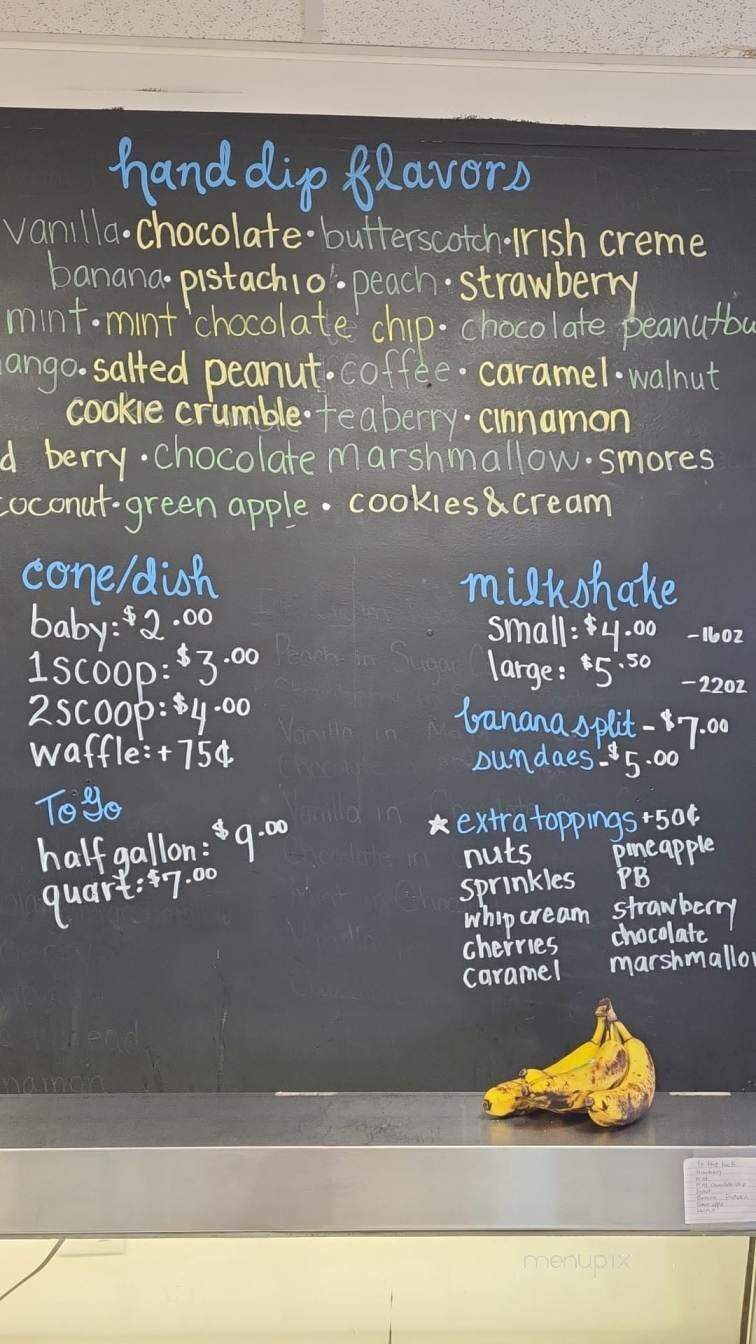 hand dip flavors
vanilla · chocolate · butterscotch · irish creme
banana · pistachio · peach · strawberry
mint · mint chocolate chip · chocolate peanutbu
ango · salted peanut · coffee · caramel · walnut
cookie crumble · teaberry · cinnamon
d berry · chocolate marshmallow · smores
coconut · green apple · cookies & cream
cone/dish
baby: $2.00
1 scoop: $3.00
2 scoop: $4.00
waffle: + 75¢
To Go
half gallon: $9.00
quart: $7.00
milkshake
small: $4.00 -16oz
large: $5.50 -22oz
banana split - $7.00
sundaes - $5.00
★ extra toppings +50¢
nuts pineapple
sprinkles PB
whip cream strawberry
cherries chocolate
caramel marshmallow
menupix